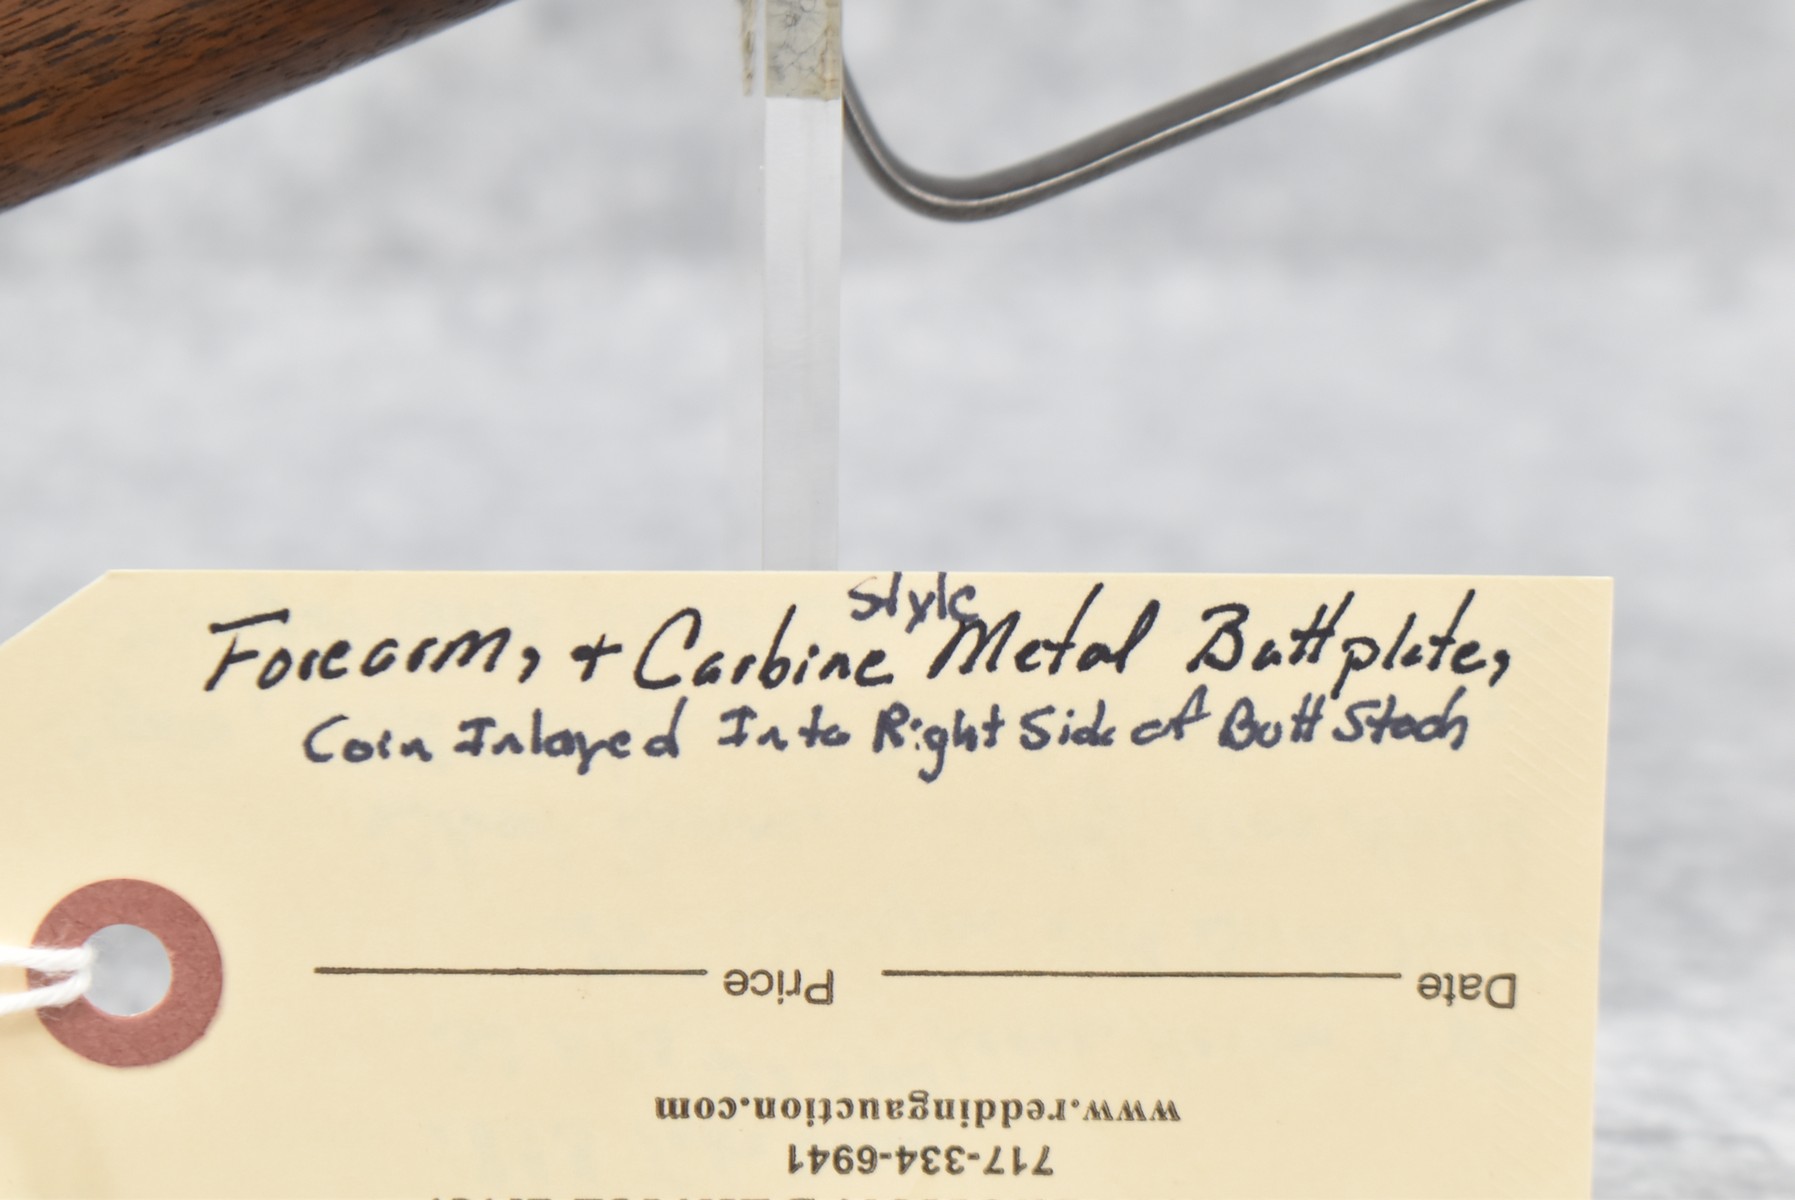 Forearm, + Carbine Style Metal Buttplate,
Coin Inlayed Into Right Side of Butt Stock
Price
Date
www.reddingauction.com
717-334-6941